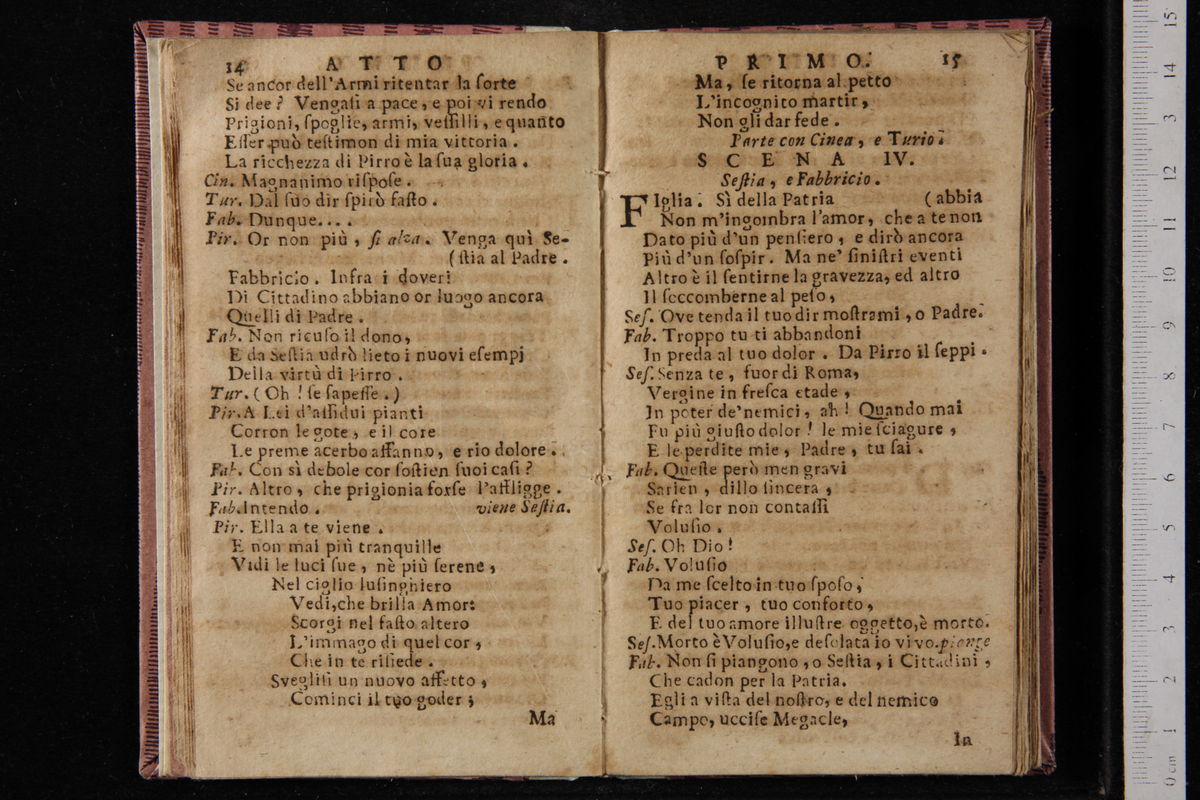 14 ATTO
Se ancor dell'Armi ritentar la ſorte
Si dee? Vengaſi a pace, e poi vi rendo
Prigioni, ſpoglie, armi, veſſilli, e quanto
Eſſer può teſtimon di mia vittoria.
La ricchezza di Pirro è la ſua gloria.
Cin. Magnanimo riſpoſe.
Tur. Dal ſuo dir ſpirò faſto.
Fab. Dunque....
Pir. Or non più, ſi alza. Venga quì Se-
(ſtia al Padre.
Fabbricio. Infra i doveri
Di Cittadino abbiano or luogo ancora
Quelli di Padre.
Fab. Non ricuſo il dono,
E da Seſtia udrò lieto i nuovi eſempj
Della virtù di Pirro.
Tur. (Oh! ſe ſapeſſe.)
Pir. A Lei d'aſſidui pianti
Corron le gote, e il core
Le preme acerbo affanno, e rio dolore.
Fab. Con sì debole cor ſoſtien ſuoi caſi?
Pir. Altro, che prigionia forſe l'affligge.
Fab. Intendo. viene Seſtia.
Pir. Ella a te viene.
E non mai più tranquille
Vidi le luci ſue, nè più ſerene,
Nel ciglio luſinghiero
Vedi, che brilla Amor:
Scorgi nel faſto altero
L'immago di quel cor,
Che in te riſiede.
Sveglisi un nuovo affetto,
Cominci il tuo goder;
Ma
PRIMO. 15
Ma, ſe ritorna al petto
L'incognito martir,
Non gli dar fede.
Parte con Cinea, e Turio.
SCENA IV.
Seſtia, e Fabbricio.
FIglia. Sì della Patria (abbia
Non m'ingombra l'amor, che a te non
Dato più d'un penſiero, e dirò ancora
Più d'un ſoſpir. Ma ne' ſiniſtri eventi
Altro è il ſentirne la gravezza, ed altro
Il ſoccomberne al peſo,
Seſ. Ove tenda il tuo dir moſtrami, o Padre.
Fab. Troppo tu ti abbandoni
In preda al tuo dolor. Da Pirro il ſeppi.
Seſ. Senza te, fuor di Roma,
Vergine in freſca etade,
In poter de'nemici, ah! Quando mai
Fu più giuſto dolor! le mie ſciagure,
E le perdite mie, Padre, tu ſai.
Fab. Queſte però men gravi
Sarien, dillo ſincera,
Se fra lor non contaſſi
Voluſio.
Seſ. Oh Dio!
Fab. Voluſio
Da me ſcelto in tuo ſpoſo,
Tuo piacer, tuo conforto,
E del tuo amore illuſtre oggetto, è morto.
Seſ. Morto è Voluſio, e deſolata io vivo. piange
Fab. Non ſi piangono, o Seſtia, i Cittadini,
Che cadon per la Patria.
Egli a viſta del noſtro, e del nemico
Campo, ucciſe Megacle,
In